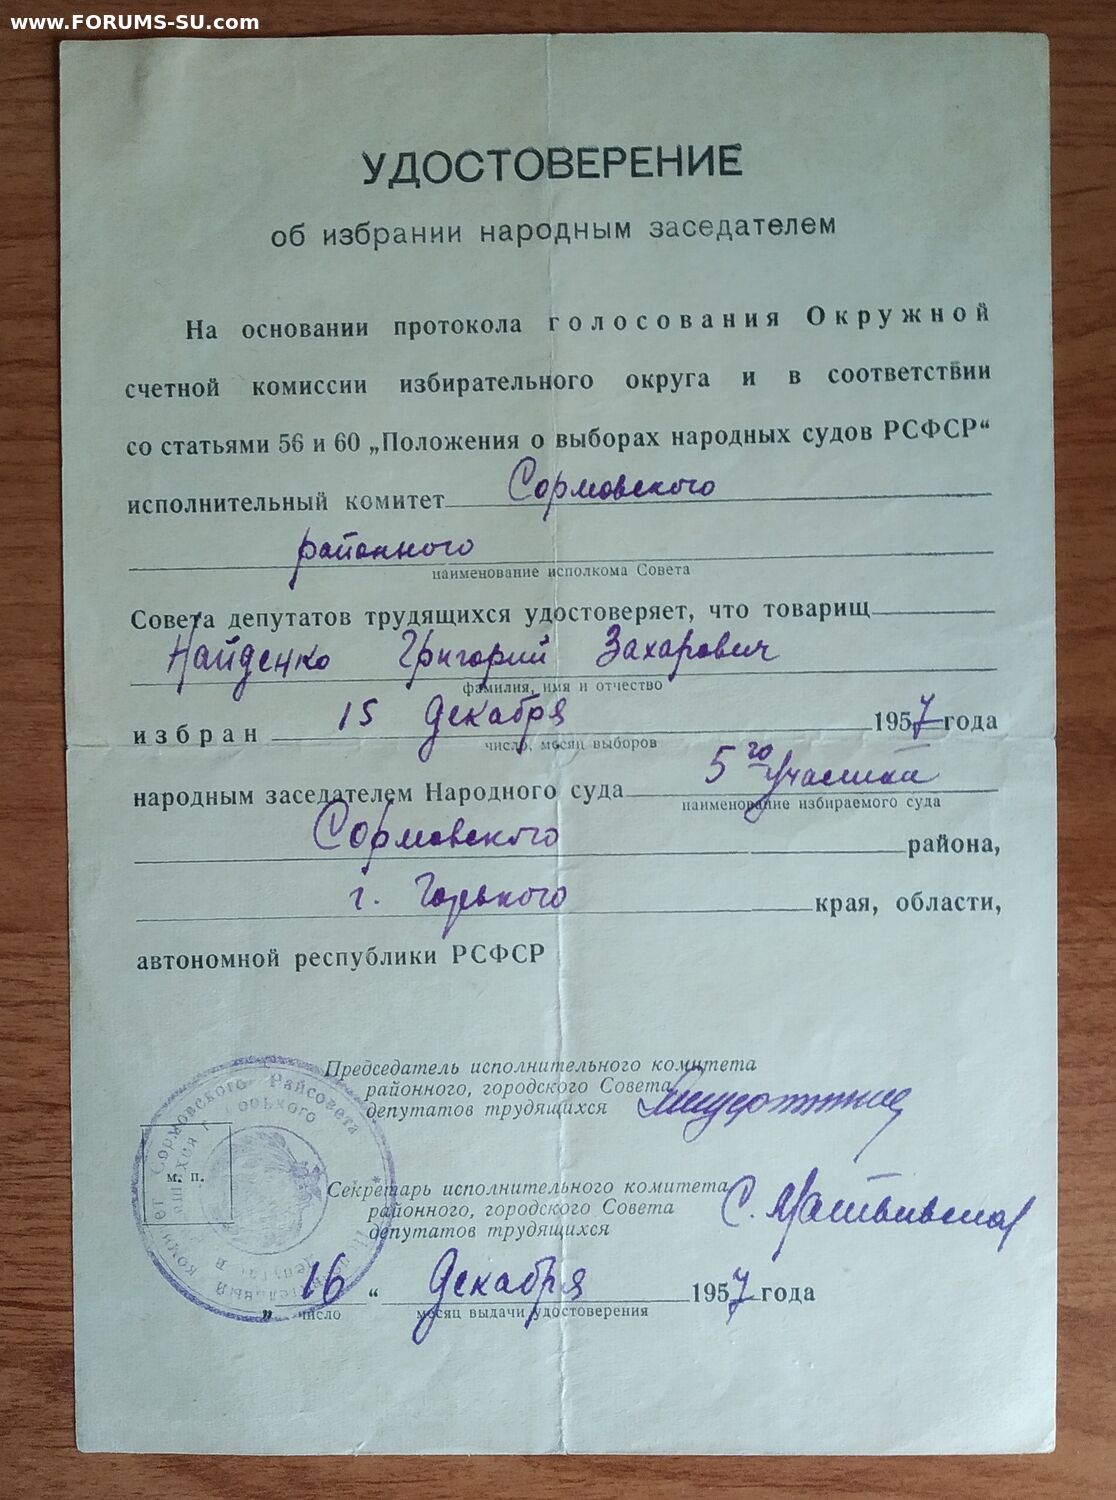 www.FORUMS-SU.com
УДОСТОВЕРЕНИЕ
об избрании народным заседателем
На основании протокола голосования Окружной
счетной комиссии избирательного округа и в соответствии
со статьями 56 и 60 „Положения о выборах народных судов РСФСР“
исполнительный комитет Сормовского
районного
наименование исполкома Совета
Совета депутатов трудящихся удостоверяет, что товарищ
Найденко Григорий Захарович
фамилия, имя и отчество
избран 15 декабря 1957 года
число, месяц выборов
народным заседателем Народного суда 5го участка
наименование избираемого суда
Сормовского района,
г. Горького края, области,
автономной республики РСФСР
Председатель исполнительного комитета
районного, городского Совета
депутатов трудящихся
Сормовского Райсовета
г. Горького
м. п.
Секретарь исполнительного комитета
районного, городского Совета
депутатов трудящихся С.
„ 16 “ декабря 1957 года
число месяц выдачи удостоверения